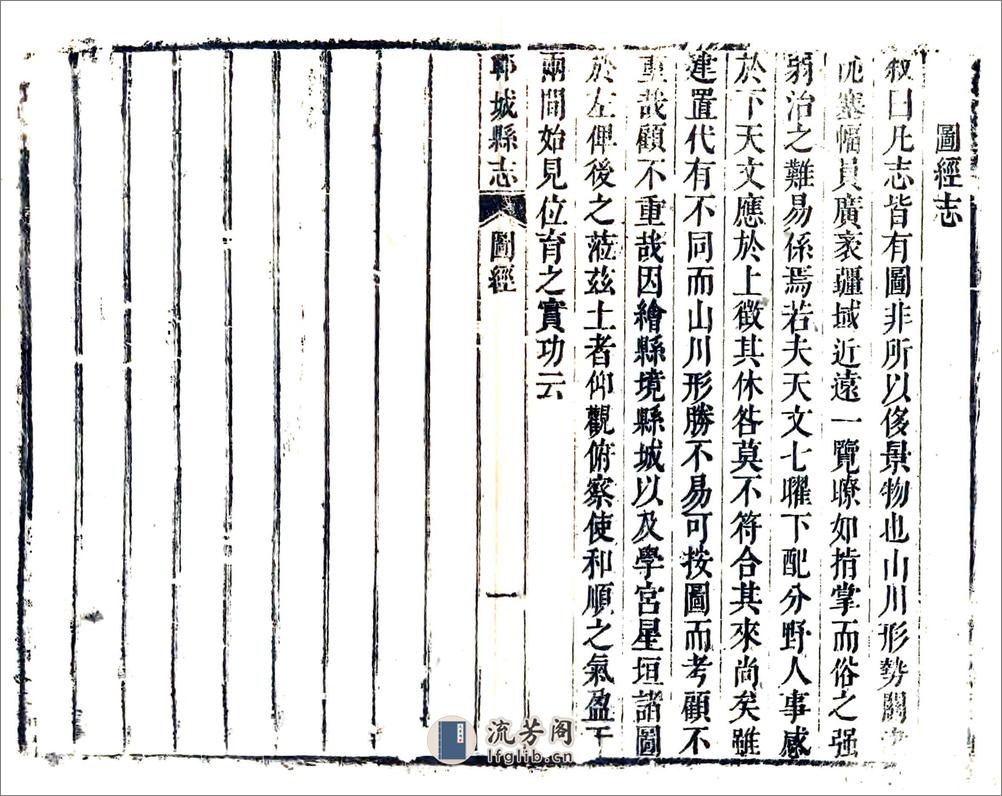 圖經志
叙曰凡志皆有圖非所以侈景物也山川形勢關
阨塞幅員廣袤疆域近遠一覽瞭如指掌而俗之强
弱治之難易係焉若夫天文七曜下配分野人事感
於下天文應於上徵其休咎莫不符合其來尚矣雖
建置代有不同而山川形勝不易可按圖而考顧不
重哉顧不重哉因繪縣境縣城以及學宮星垣諸圖
於左俾後之蒞兹土者仰觀俯察使和順之氣盈于
兩間始見位育之實功云
城縣志
圖經
一
流芳阁
lfglib.cn